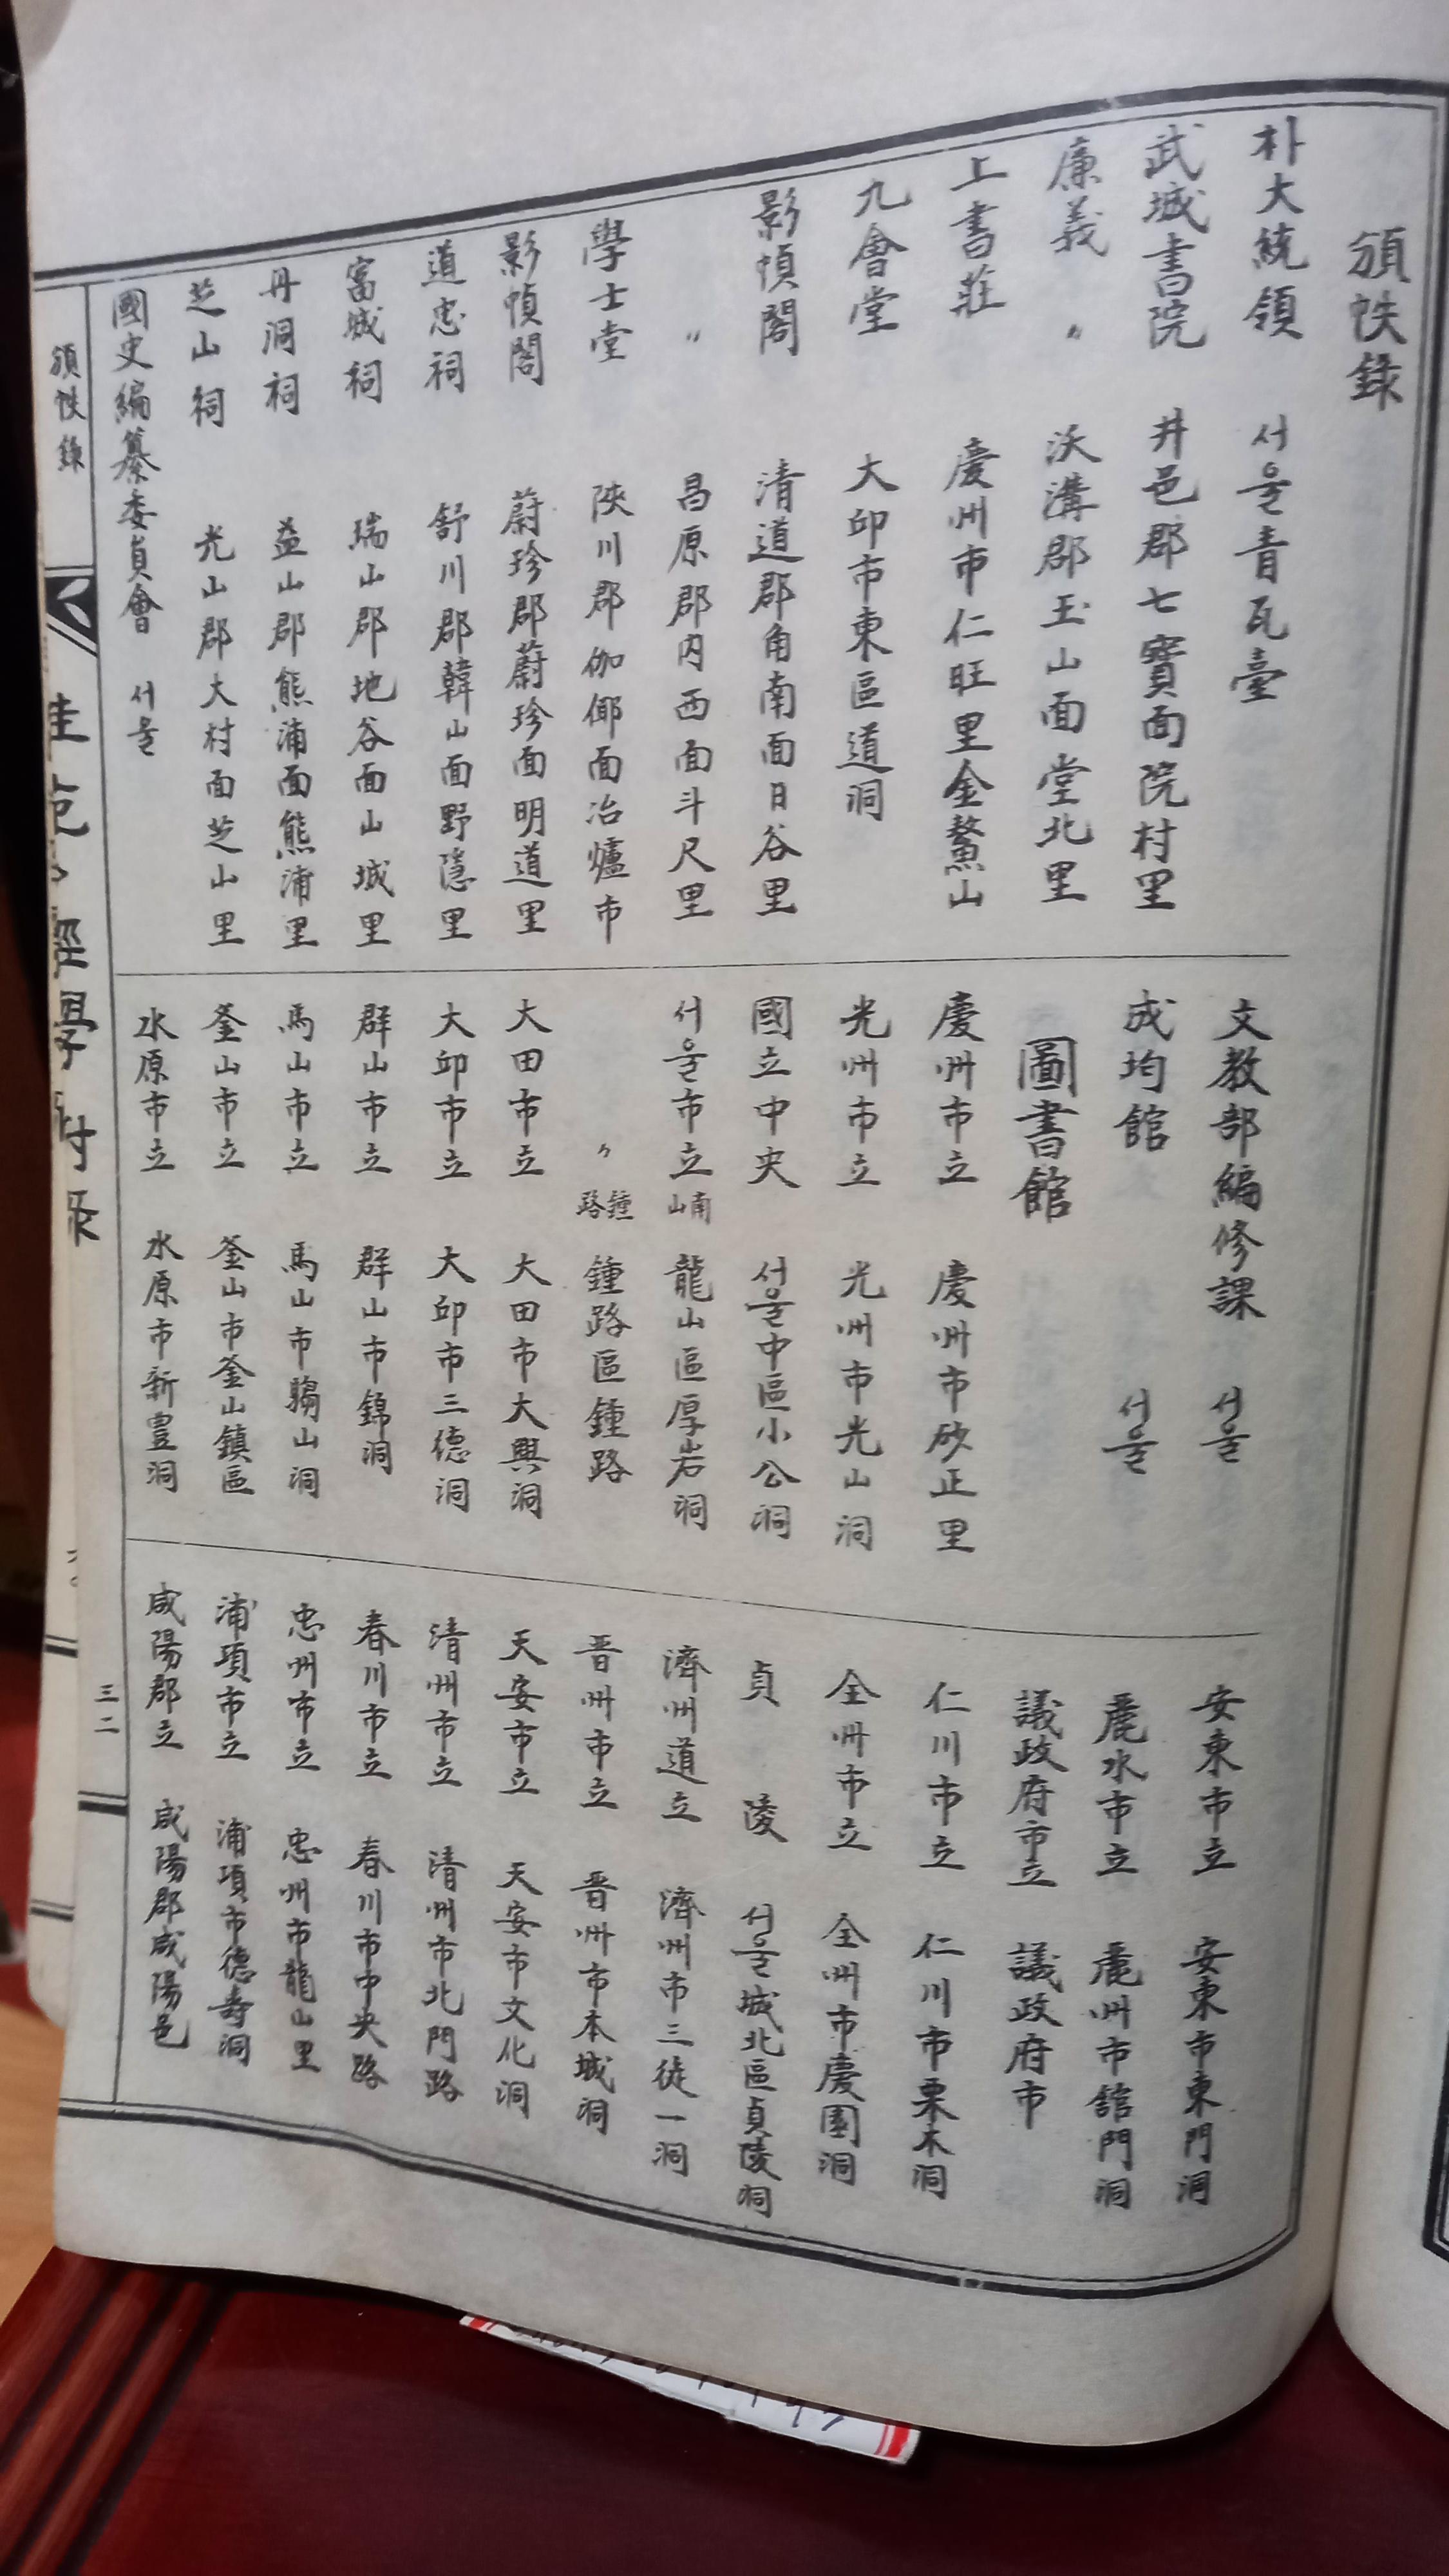 頒帙錄
朴大統領 서울青瓦臺
武城書院 井邑郡七寶面院村里
廉義〃 沃溝郡玉山面堂北里
上書莊 慶州市仁旺里金鰲山
九會堂 大邱市東區道洞
影幀閣 清道郡角南面日谷里
〃 昌原郡内西面斗尺里
學士堂 陜川郡伽倻面冶爐市
影幀閣 蔚珍郡蔚珍面明道里
道忠祠 舒川郡韓山面野隱里
富城祠 瑞山郡地谷面山城里
丹洞祠 益山郡熊浦面熊浦里
芝山祠 光山郡大村面芝山里
國史編纂委員會 서울
文教部編修課 서울
成均館 서울
圖書館
慶州市立 慶州市砂正里
光州市立 光州市光山洞
國立中央 서울中區小公洞
서울市立南山 龍山區厚岩洞
〃鍾路 鍾路區鍾路
大田市立 大田市大興洞
大邱市立 大邱市三德洞
群山市立 群山市錦洞
馬山市立 馬山市騶山洞
釜山市立 釜山市釜山鎮區
水原市立 水原市新豊洞
安東市立 安東市東門洞
麗水市立 麗州市舘門洞
議政府市立 議政府市
仁川市立 仁川市栗木洞
全州市立 全州市慶園洞
貞陵 서울城北區貞陵洞
濟州道立 濟州市三徒一洞
晋州市立 晋州市本城洞
天安市立 天安市文化洞
清州市立 清州市北門路
春川市立 春川市中央路
忠州市立 忠州市龍山里
浦項市立 浦項市德壽洞
咸陽郡立 咸陽郡咸陽邑
頒帙錄
三二